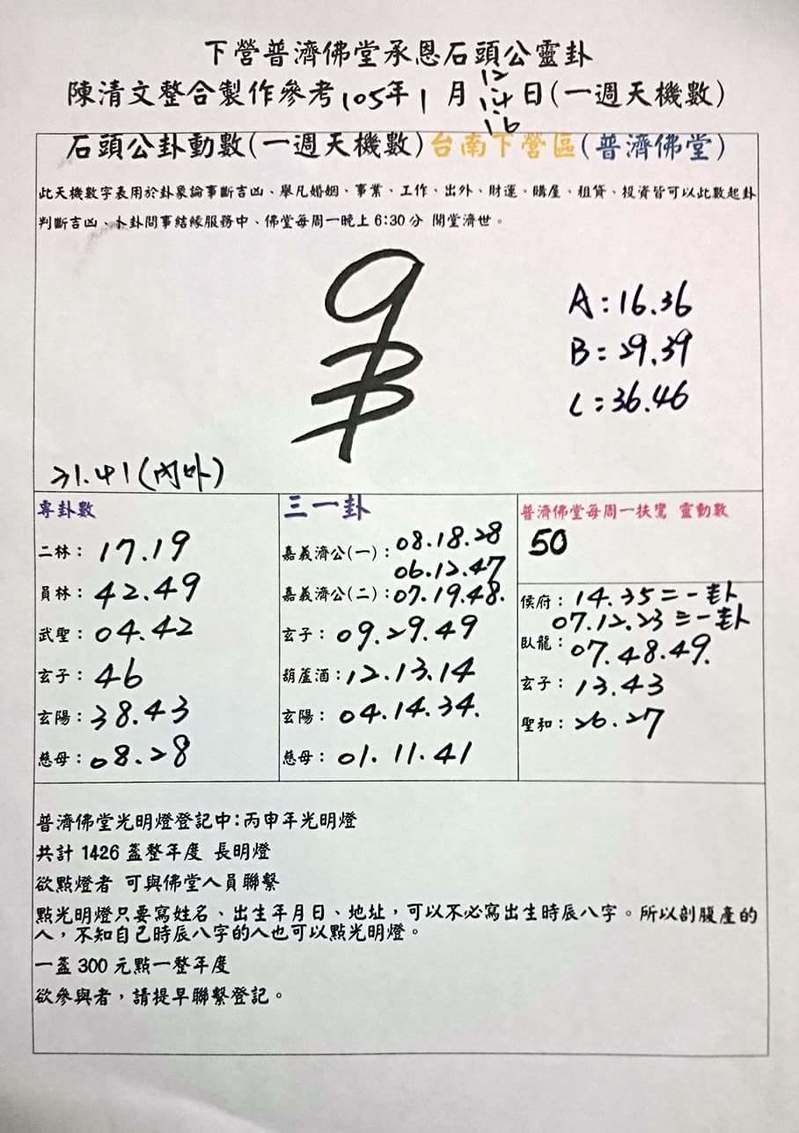 下營普濟佛堂承恩石頭公靈卦
陳清文整合製作參考105年1月12.14.16日(一週天機數)
石頭公卦動數(一週天機數)台南下營區(普濟佛堂)
此天機數字表用於卦象論事斷吉凶、舉凡婚姻、事業、工作、出外、財運、購屋、租賃、投資皆可以此數起卦
判斷吉凶、卜卦問事結緣服務中、佛堂每周一晚上6:30分 開堂濟世。
A:16.36
B:29.39
C:36.46
31.41(內外)
專卦數
二林:17.19
員林:42.49
武聖:04.42
玄子:46
玄陽:38.43
慈母:08.28
三一卦
嘉義濟公(一):08.18.28
06.12.47
嘉義濟公(二):07.19.48.
玄子:09.29.49
葫蘆酒:12.13.14
玄陽:04.14.34.
慈母:01.11.41
普濟佛堂每周一扶鸞 靈動數
50
侯府:14.35二一卦
07.12.23三一卦
臥龍:07.48.49.
玄子:13.43
聖和:26.27
普濟佛堂光明燈登記中:丙申年光明燈
共計1426盞整年度 長明燈
欲點燈者 可與佛堂人員聯繫
點光明燈只要寫姓名、出生年月日、地址，可以不必寫出生時辰八字。所以剖腹產的
人，不知自己時辰八字的人也可以點光明燈。
一盞300元點一整年度
欲參與者，請提早聯繫登記。